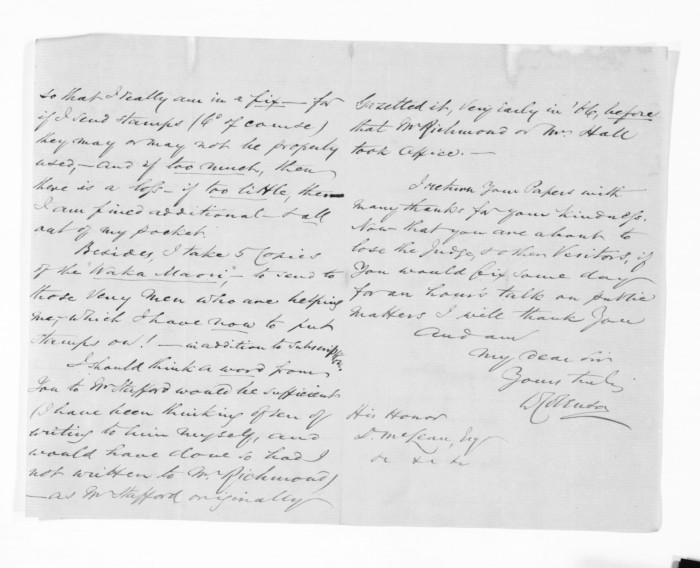 so that I really am in a fix - for
if I send stamps (6d of course)
they may or may not be properly
used, - and if too much, then
there is a loss - if too little, then
I am fined additional - & all
out of my pocket.
Besides, I take 5 Copies
of the 'Waka Maori', - to send to
those very men who are helping
me, - which I have now to put
stamps on! - in addition to subscriptn.
I should think a word from
You to Mr Stafford would be sufficient
(I have been thinking often of
writing to him myself, and
would have done so had I
not written to Mr Richmond)
- as Mr Stafford originally
Gazetted it, very early in '66, before
that Mr Richmond or Mr Hall
took office. -
I return Your Papers with
many thanks for your kindness.
Now that you are about to
lose the Judge, & other Visitors, if
You would fix some day
for an hour's talk on public
matters I will thank You
And am
My dear Sir
Yours truly
His Honor
D. McLean, Esq
&c &c &c